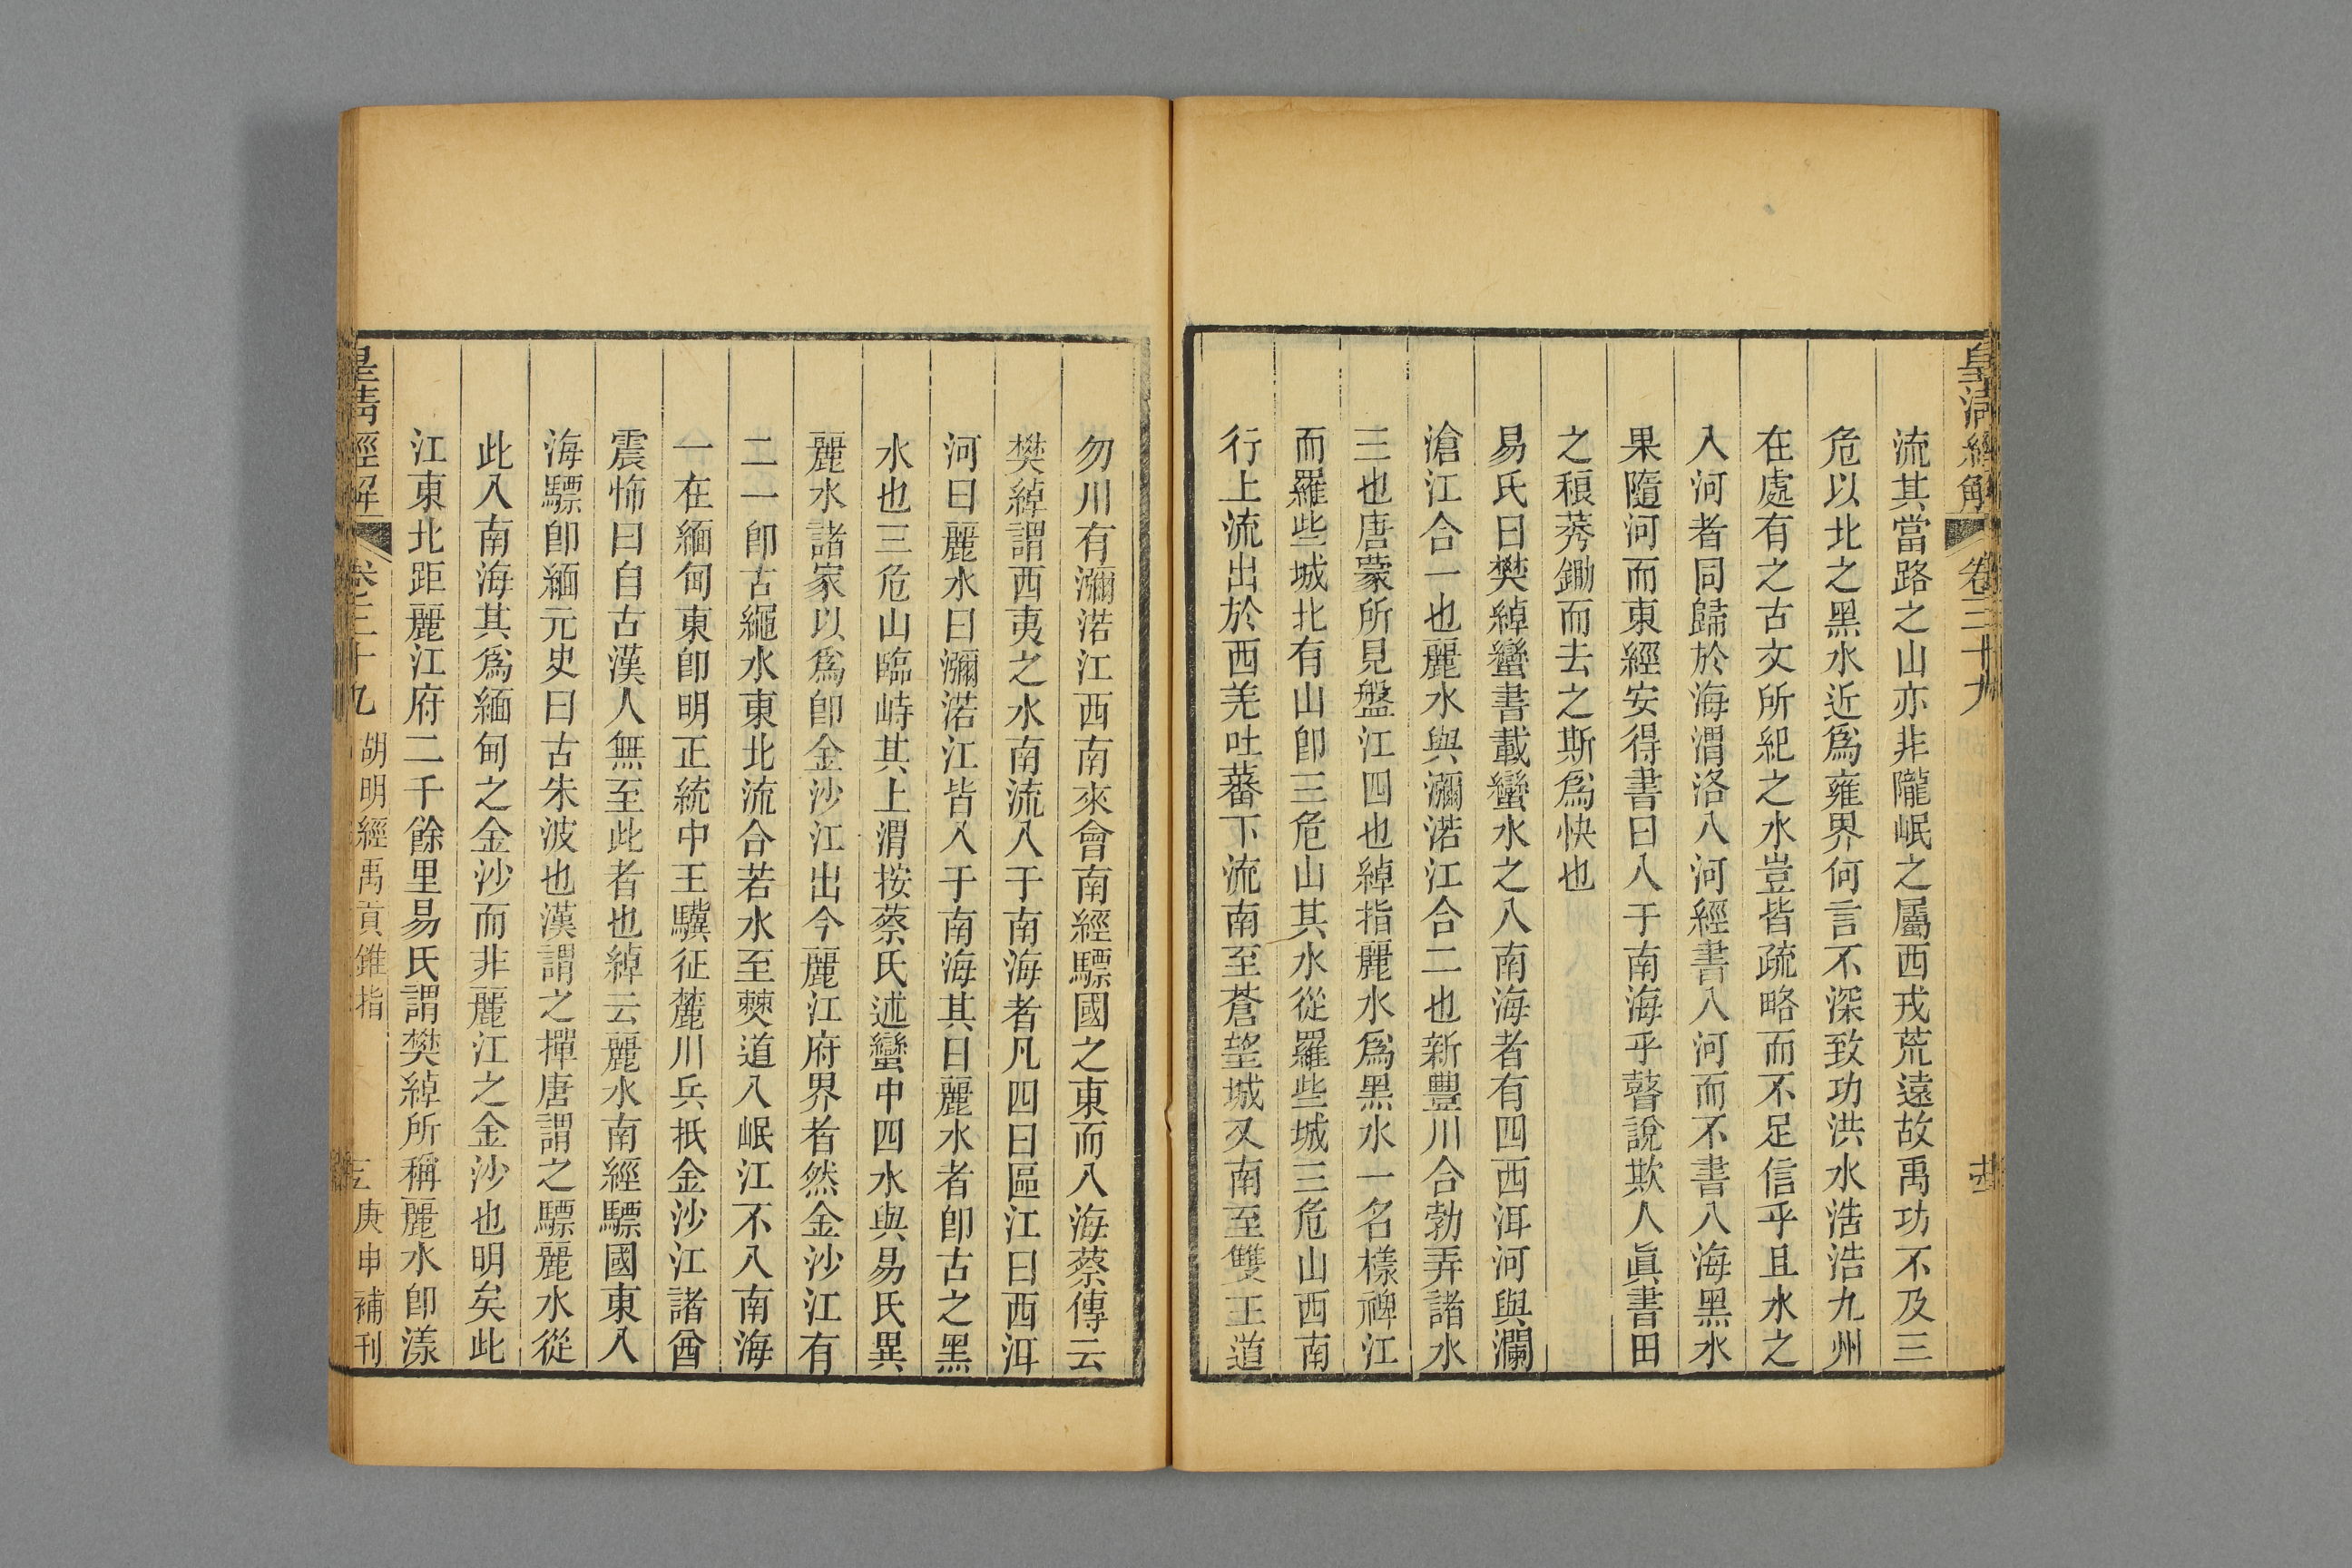 皇清經解
卷三十九
流其當路之山亦非隴岷之屬西戎荒遠故禹功不及三
危以北之黑水近爲雍界何言不深致功洪水浩浩九州
在處有之古文所紀之水豈皆疏略而不足信乎且水之
入河者同歸於海渭洛入河經書入河而不書入海黑水
果隨河而東經安得書曰入于南海乎瞽說欺人眞書田
之稂莠鋤而去之斯爲快也
易氏曰樊綽蠻書載蠻水之入南海者有四西洱河與瀾
滄江合一也麗水與瀰渃江合二也新豐川合勃弄諸水
三也唐蒙所見盤江四也綽指麗水爲黑水一名樣裨江
而羅些城北有山卽三危山其水從羅些城三危山西南
行上流出於西羌吐蕃下流南至蒼望城又南至雙王道
勿川有瀰渃江西南來會南經驃國之東而入海蔡傳云
樊綽謂西夷之水南流入于南海者凡四曰區江曰西洱
河曰麗水曰瀰渃江皆入于南海其曰麗水者卽古之黑
水也三危山臨峙其上渭按蔡氏述蠻中四水與易氏異
麗水諸家以爲卽金沙江出今麗江府界者然金沙江有
二一卽古繩水東北流合若水至僰道入岷江不入南海
一在緬甸東卽明正統中王驥征麓川兵抵金沙江諸酋
震怖曰自古漢人無至此者也綽云麗水南經驃國東入
海驃卽緬元史曰古朱波也漢謂之撣唐謂之驃麗水從
此入南海其爲緬甸之金沙而非麗江之金沙也明矣此
江東北距麗江府二千餘里易氏謂樊綽所稱麗水卽漾
皇清經解
卷三十九
胡明經禹貢錐指
庚申補刊